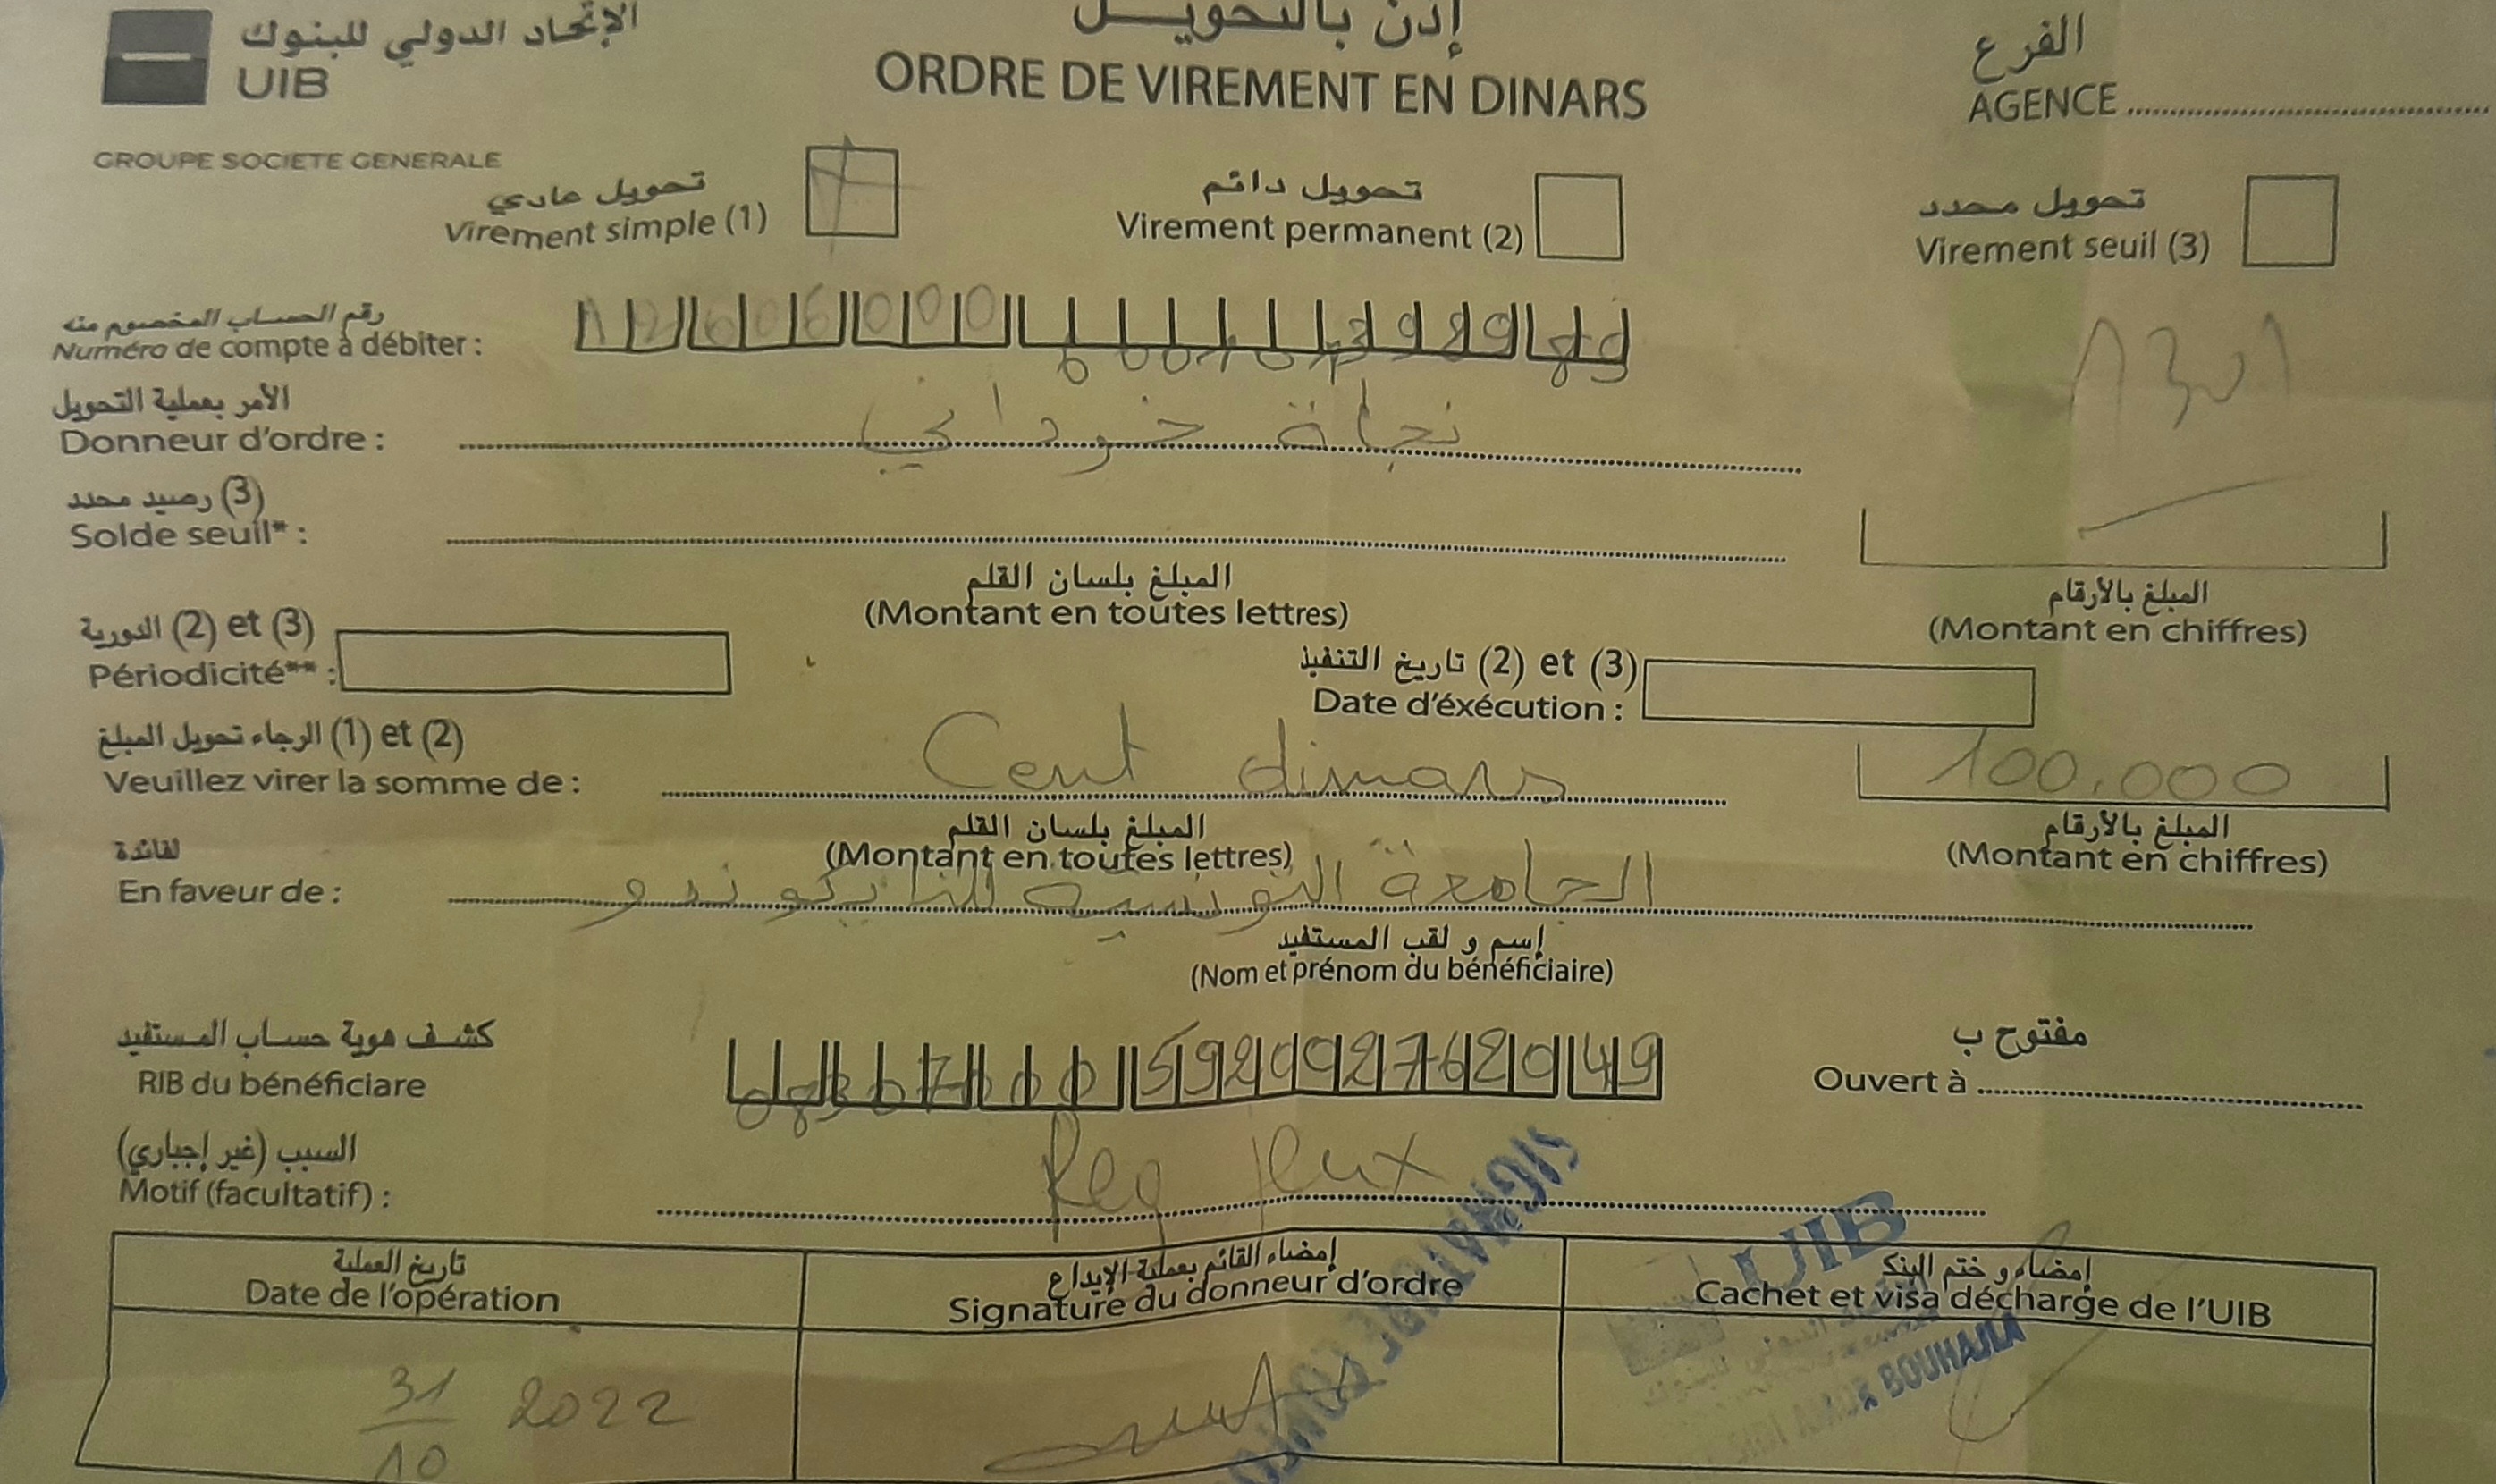 الإتحاد الدولي للبنوك
UIB
GROUPE SOCIETE GENERALE
إذن بالتحويل
ORDRE DE VIREMENT EN DINARS
الفرع
AGENCE
تحويل عادي
Virement simple (1)
تحويل دائم
Virement permanent (2)
تحويل محدد
Virement seuil (3)
رقم الحساب المخصوم منه
Numéro de compte à débiter :
الأمر بعملية التحويل
Donneur d'ordre :
نجاة
(3) رصيد محدد
Solde seuil* :
المبلغ بلسان القلم
(Montant en toutes lettres)
المبلغ بالأرقام
(Montant en chiffres)
الدورية (2) et (3)
Périodicité** :
تاريخ التنفيذ (2) et (3)
Date d'éxécution :
الرجاء تحويل المبلغ (1) et (2)
Veuillez virer la somme de : Cent dinars 100.000
المبلغ بلسان القلم
(Montant en toutes lettres)
المبلغ بالأرقام
(Montant en chiffres)
لفائدة
En faveur de : الجامعة التونسية للتايكوندو
إسم و لقب المستفيد
(Nom et prénom du bénéficiaire)
كشف هوية حساب المستفيد
RIB du bénéficiare
مفتوح ب
Ouvert à
السبب (غير إجباري)
Motif (facultatif) : Reg jeux
تاريخ العملية
Date de l'opération
إمضاء القائم بعملية الإيداع
Signature du donneur d'ordre
إمضاء و ختم البنك
Cachet et visa décharge de l'UIB
UIB
BOUHAJLA
31/10 2022